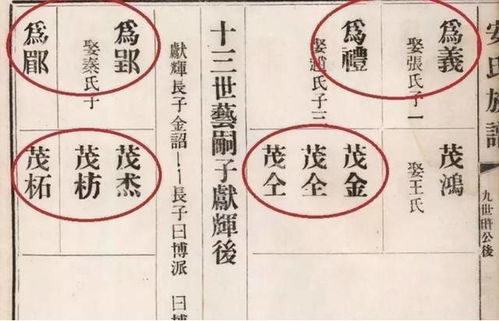 安氏族譜
九世公後
爲義
娶張氏子一
茂鴻
娶王氏
爲禮
娶趙氏子三
茂金
茂仝
茂仝
十三世藝嗣子獻輝後
獻輝長子金詔——長子曰博派 曰博
爲郢
娶秦氏子
爲
茂杰
茂枋
茂柘